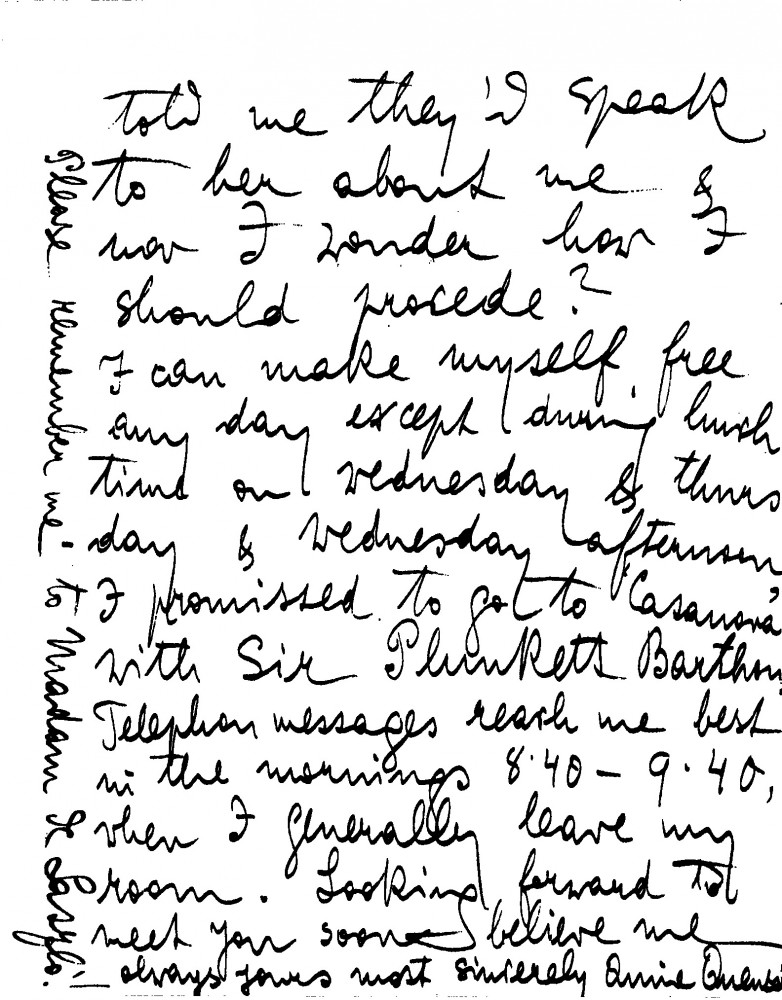 told me they'd speak
to her about me &
now I wonder how I
should procede?
I can make myself free
any day except during lunch
time on Wednesday & thurs
day & Wednesday afternoon
I promissed to got to 'Casanova'
with Sir Plunkett Barthon
Telephon messages reach me best
in the mornings 8.40 - 9.40,
when I generally leave my
room. Looking forward to
meet you soon believe me
always yours most sincerely Annie
Please remember me to Madam de Laszlo.